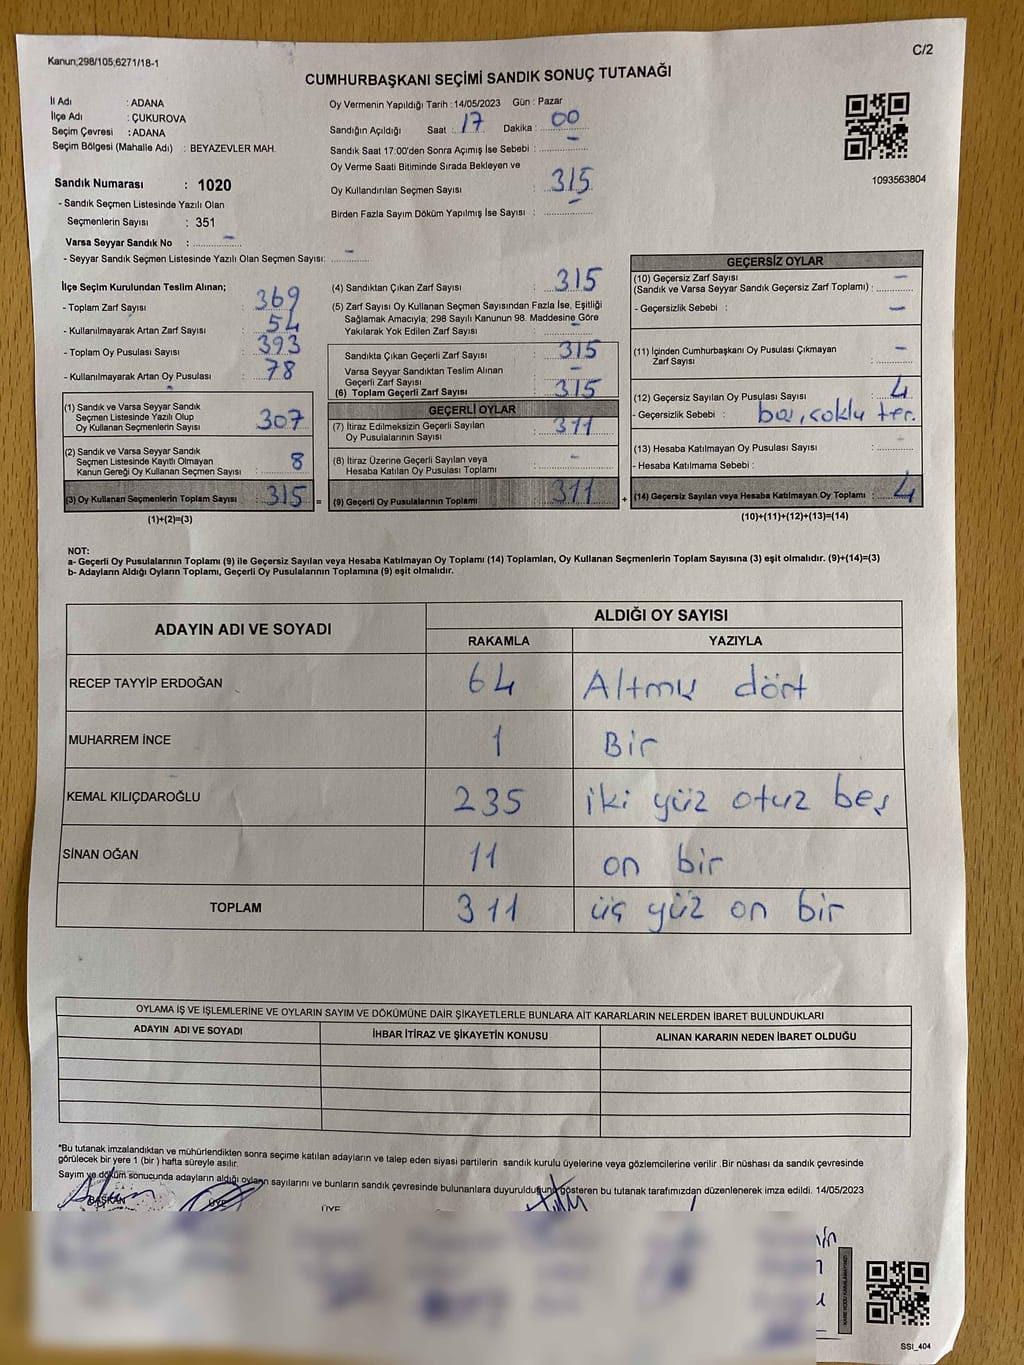 Kanun;298/105,6271/18-1
C/2
CUMHURBAŞKANI SEÇİMİ SANDIK SONUÇ TUTANAĞI
İl Adı : ADANA
İlçe Adı : ÇUKUROVA
Seçim Çevresi : ADANA
Seçim Bölgesi (Mahalle Adı) : BEYAZEVLER MAH.
Oy Vermenin Yapıldığı Tarih : 14/05/2023 Gün : Pazar
Sandığın Açıldığı Saat : 17 Dakika : 00
Sandık Saat 17:00'den Sonra Açımış İse Sebebi : -
Oy Verme Saati Bitiminde Sırada Bekleyen ve
Oy Kullandırılan Seçmen Sayısı : 315
Birden Fazla Sayım Döküm Yapılmış İse Sayısı : -
1093563804
Sandık Numarası : 1020
- Sandık Seçmen Listesinde Yazılı Olan
Seçmenlerin Sayısı : 351
Varsa Seyyar Sandık No : -
- Seyyar Sandık Seçmen Listesinde Yazılı Olan Seçmen Sayısı: -
İlçe Seçim Kurulundan Teslim Alınan;
- Toplam Zarf Sayısı : 369
- Kullanılmayarak Artan Zarf Sayısı : 54
- Toplam Oy Pusulası Sayısı : 393
- Kullanılmayarak Artan Oy Pusulası : 78
(1) Sandık ve Varsa Seyyar Sandık
Seçmen Listesinde Yazılı Olup
Oy Kullanan Seçmenlerin Sayısı : 307
(2) Sandık ve Varsa Seyyar Sandık
Seçmen Listesinde Kayıtlı Olmayan
Kanun Gereği Oy Kullanan Seçmen Sayısı : 8
(3) Oy Kullanan Seçmenlerin Toplam Sayısı : 315 =
(1)+(2)=(3)
(4) Sandıktan Çıkan Zarf Sayısı : 315
(5) Zarf Sayısı Oy Kullanan Seçmen Sayısından Fazla İse, Eşitliği
Sağlamak Amacıyla; 298 Sayılı Kanunun 98. Maddesine Göre
Yakılarak Yok Edilen Zarf Sayısı : -
Sandıkta Çıkan Geçerli Zarf Sayısı : 315
Varsa Seyyar Sandıktan Teslim Alınan
Geçerli Zarf Sayısı : -
(6) Toplam Geçerli Zarf Sayısı : 315
GEÇERLİ OYLAR
(7) İtiraz Edilmeksizin Geçerli Sayılan
Oy Pusulalarının Sayısı : 311
(8) İtiraz Üzerine Geçerli Sayılan veya
Hesaba Katılan Oy Pusulası Toplamı : -
(9) Geçerli Oy Pusulalarının Toplamı : 311 +
GEÇERSİZ OYLAR
(10) Geçersiz Zarf Sayısı
(Sandık ve Varsa Seyyar Sandık Geçersiz Zarf Toplamı) : -
- Geçersizlik Sebebi : -
(11) İçinden Cumhurbaşkanı Oy Pusulası Çıkmayan
Zarf Sayısı : -
(12) Geçersiz Sayılan Oy Pusulası Sayısı : 4
- Geçersizlik Sebebi : boş, çoklu ter.
(13) Hesaba Katılmayan Oy Pusulası Sayısı :
- Hesaba Katılmama Sebebi :
(14) Geçersiz Sayılan veya Hesaba Katılmayan Oy Toplamı : 4
(10)+(11)+(12)+(13)=(14)
NOT:
a- Geçerli Oy Pusulalarının Toplamı (9) ile Geçersiz Sayılan veya Hesaba Katılmayan Oy Toplamı (14) Toplamları, Oy Kullanan Seçmenlerin Toplam Sayısına (3) eşit olmalıdır. (9)+(14)=(3)
b- Adayların Aldığı Oyların Toplamı, Geçerli Oy Pusulalarının Toplamına (9) eşit olmalıdır.
ADAYIN ADI VE SOYADI ALDIĞI OY SAYISI
RAKAMLA YAZIYLA
RECEP TAYYİP ERDOĞAN 64 Altmış dört
MUHARREM İNCE 1 Bir
KEMAL KILIÇDAROĞLU 235 iki yüz otuz beş
SİNAN OĞAN 11 on bir
TOPLAM 311 üç yüz on bir
OYLAMA İŞ VE İŞLEMLERİNE VE OYLARIN SAYIM VE DÖKÜMÜNE DAİR ŞİKAYETLERLE BUNLARA AİT KARARLARIN NELERDEN İBARET BULUNDUKLARI
ADAYIN ADI VE SOYADI İHBAR İTİRAZ VE ŞİKAYETİN KONUSU ALINAN KARARIN NEDEN İBARET OLDUĞU
*Bu tutanak imzalandıktan ve mühürlendikten sonra seçime katılan adayların ve talep eden siyasi partilerin sandık kurulu üyelerine veya gözlemcilerine verilir .Bir nüshası da sandık çevresinde
görülecek bir yere 1 (bir ) hafta süreyle asılır.
Sayım ve döküm sonucunda adayların aldığı oyların sayılarını ve bunların sandık çevresinde bulunanlara duyurulduğunu gösteren bu tutanak tarafımızdan düzenlenerek imza edildi. 14/05/2023
BAŞKAN ÜYE ÜYE
SSI_404